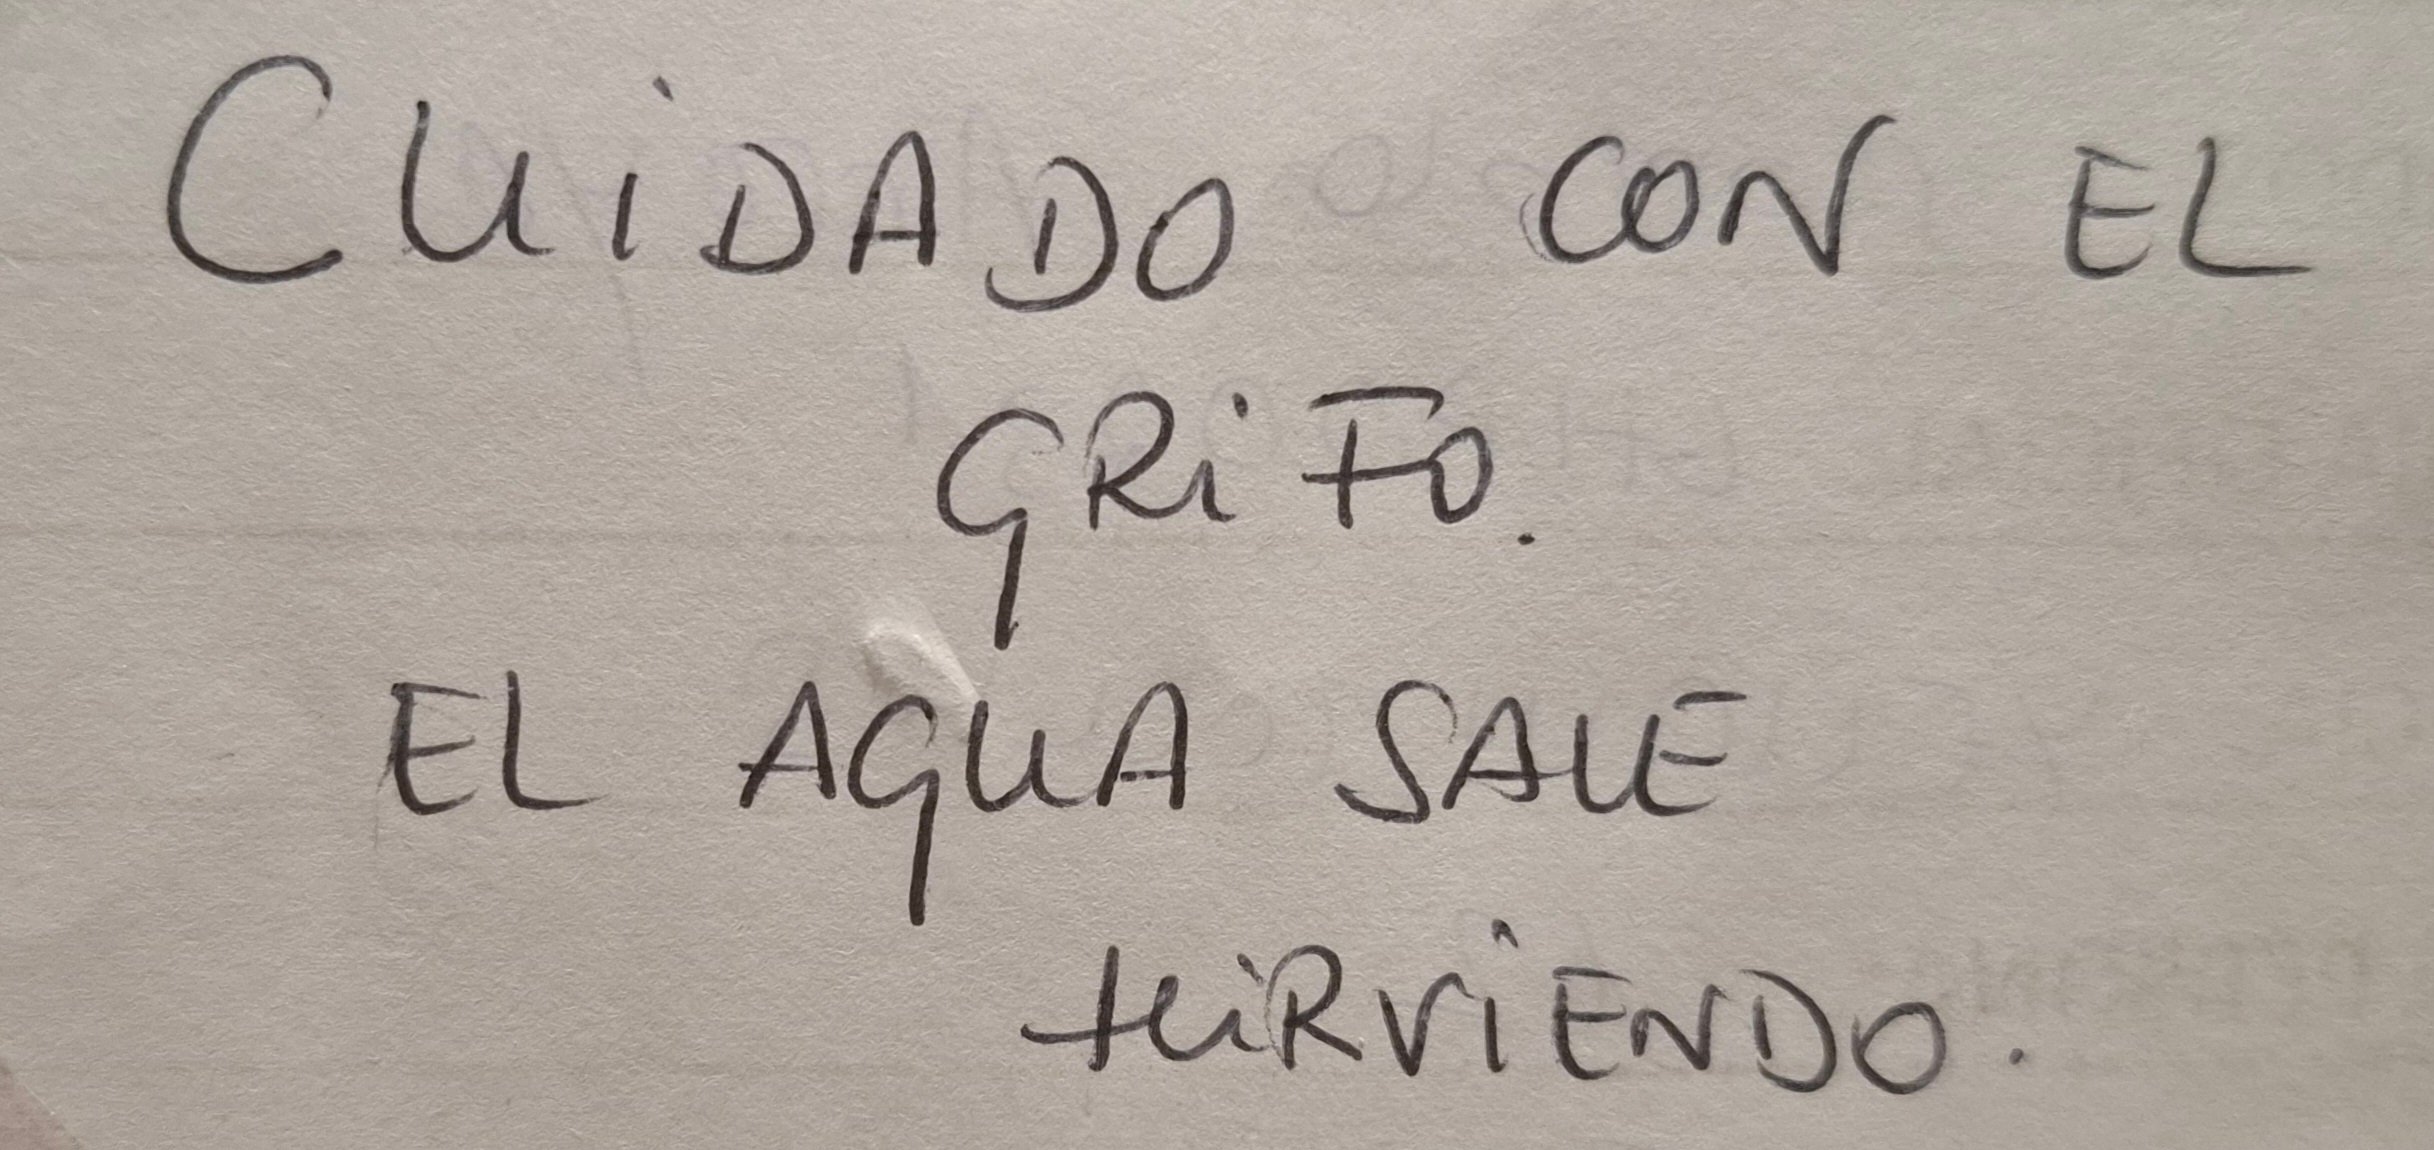 CUIDADO CON EL
GRIFO.
EL AGUA SALE
HIRVIENDO.